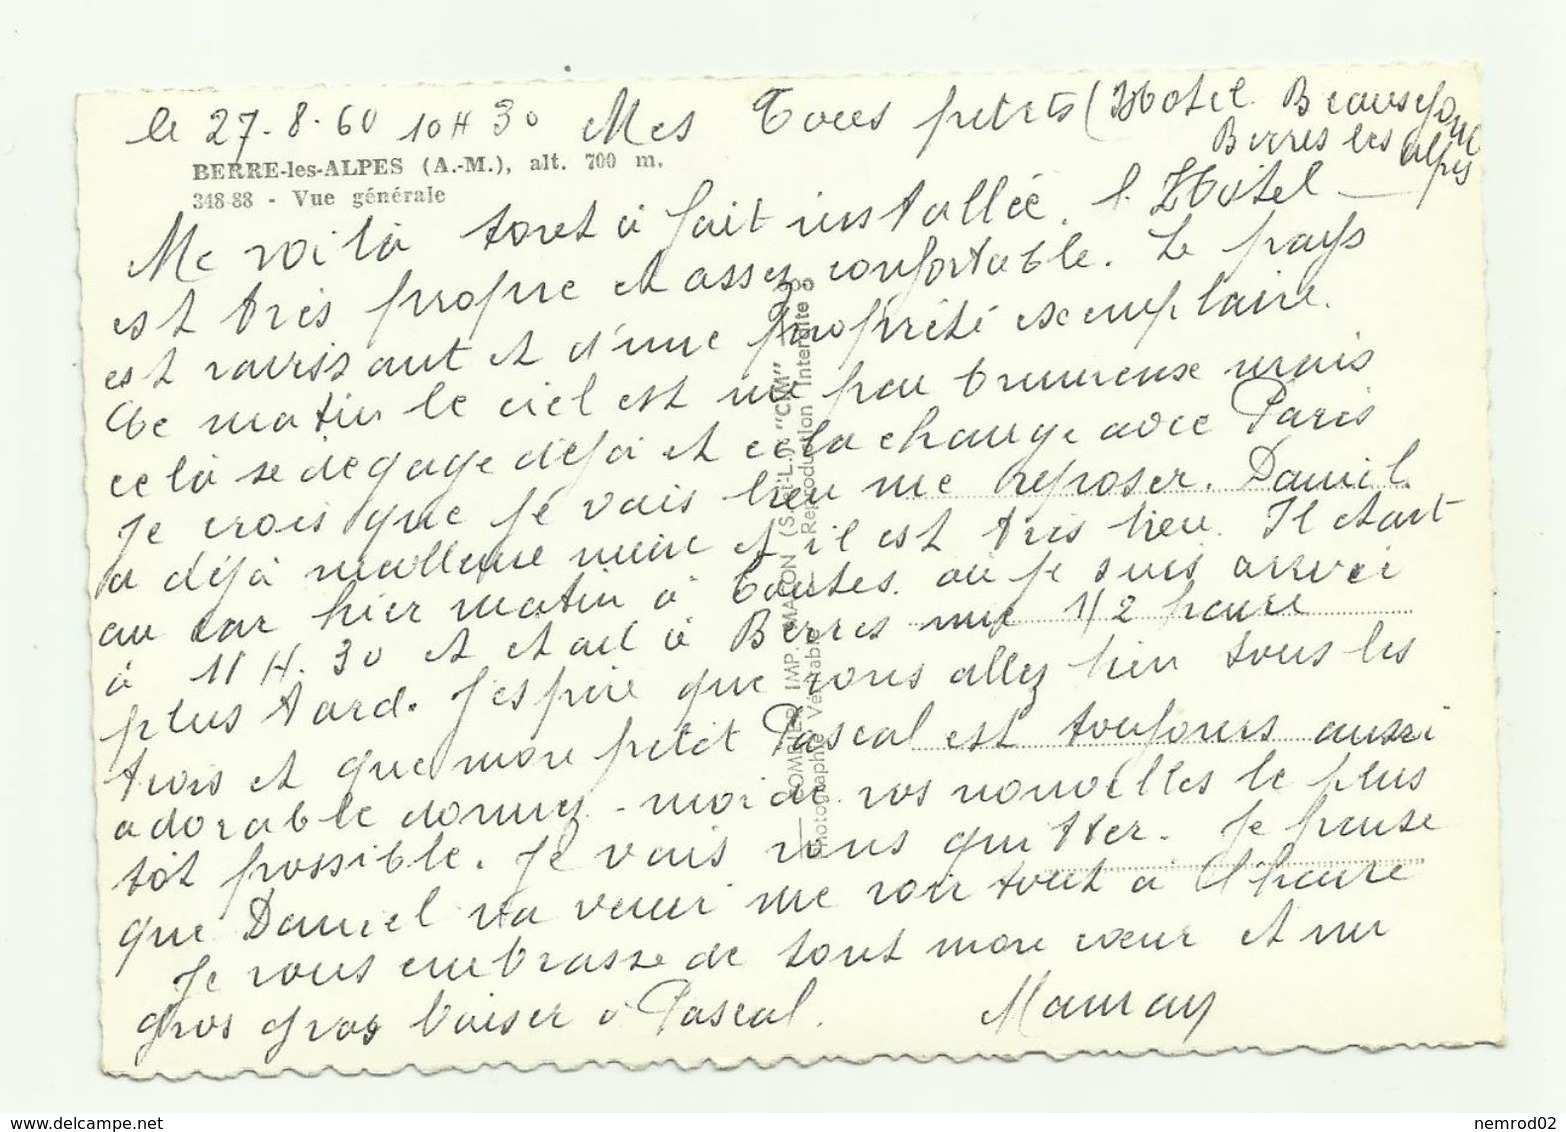 le 27-8-60 10 H 30 Mes petits (Hotel Beausejour
Berres les Alpes
BERRE-les-ALPES (A.-M.), alt. 700 m.
348-88 - Vue générale
Me voilà tout à fait installée. l'Hôtel
est très propre et assez confortable. Le pays
est ravissant et d'une propriété exemplaire.
Ce matin le ciel est un peu brumeuse mais
celà se dégage déjà et cela change avec Paris
Je crois que je vais bien me reposer. Daniel
a déjà meilleure mine et il est très bien. Il etait
au car hier matin à Contes. où je suis arrivée
à 11 H. 30 et etait à Berres une 1/2 heure
plus tard. J'espère que vous allez bien tous les
trois et que mon petit Pascal est toujours aussi
adorable donnez-moi de vos nouvelles le plus
tôt possible. Je vais vous quitter. Je pense
que Daniel va venir me voir tout à l'heure
Je vous embrasse de tout mon cœur et un
gros gros baiser à Pascal. Maman
COMBIER IMP. MACON (S.-et-L.) "CIM"
Photographie Véritable - Reproduction Interdite
delcampe.net
nemrod02